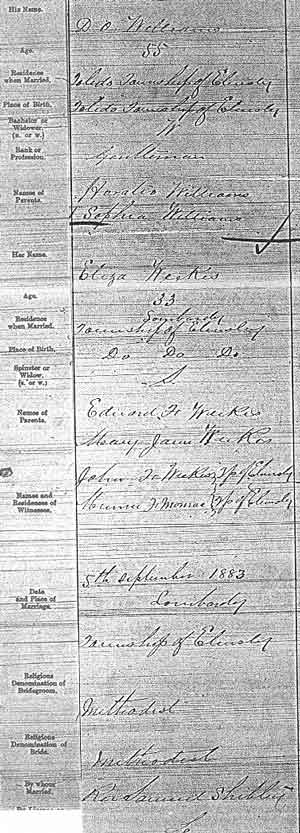 His Name.
D. O. Williams
Age.
55
Residence when Married.
Toledo Township of Elmsley
Place of Birth.
Toledo Township of Elmsley
Bachelor or Widower.
(B. or W.)
W
Rank or Profession.
Gentleman
Names of Parents.
Horatio Williams
Sophia Williams
Her Name.
Eliza Weekes
Age.
33
Residence when Married.
Lombardy
Township of Elmsley
Place of Birth.
Do Do Do
Spinster or Widow.
(S. or W.)
S.
Names of Parents.
Edward Weekes
Mary Jane Weekes
Names and Residences of Witnesses.
John Weekes Tp of Elmsley
Tp of Elmsley
Date and Place of Marriage.
5th September 1883
Lombardy
Township of Elmsley
Religious Denomination of Bridegroom.
Methodist
Religious Denomination of Bride.
Methodist
By whom Married.
Rev Samuel Shibley